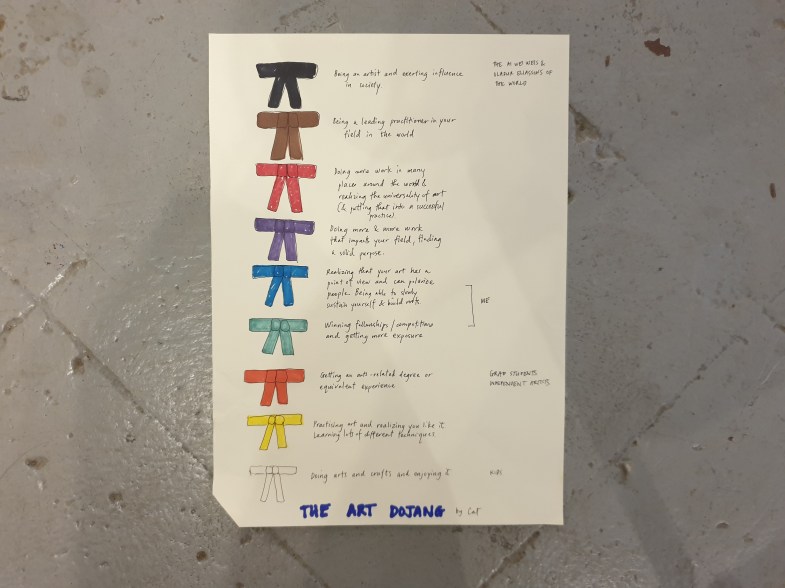 Being an artist and exerting influence
in society.
THE AI WEI WEIS &
OLAFUR ELIASSONS OF
THE WORLD
Being a leading practitioner in your
field in the world
Doing more work in many
places around the world &
realizing the universality of art
(& putting that into a successful
practice)
Doing more & more work
that impacts your field, finding
a solid purpose.
Realizing that your art has a
point of view and can polarize
people. Being able to slowly
sustain yourself & build
ME
Winning fellowships / competitions
and getting more exposure
Getting an arts-related degree or
equivalent experience
GRAD STUDENTS
INDEPENDENT ARTISTS
Practising art and realizing you like it.
Learning lots of different techniques
Doing arts and crafts and enjoying it
KIDS
THE ART DOJANG by Cat